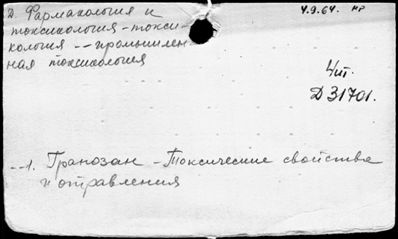 Д. Фармакология и
токсикология - токси-
кология -- промышлен-
ная токсикология
4.9.64. нр
4ш.
Д31701.
--1. Гранозан - Токсические свойства
и отравления